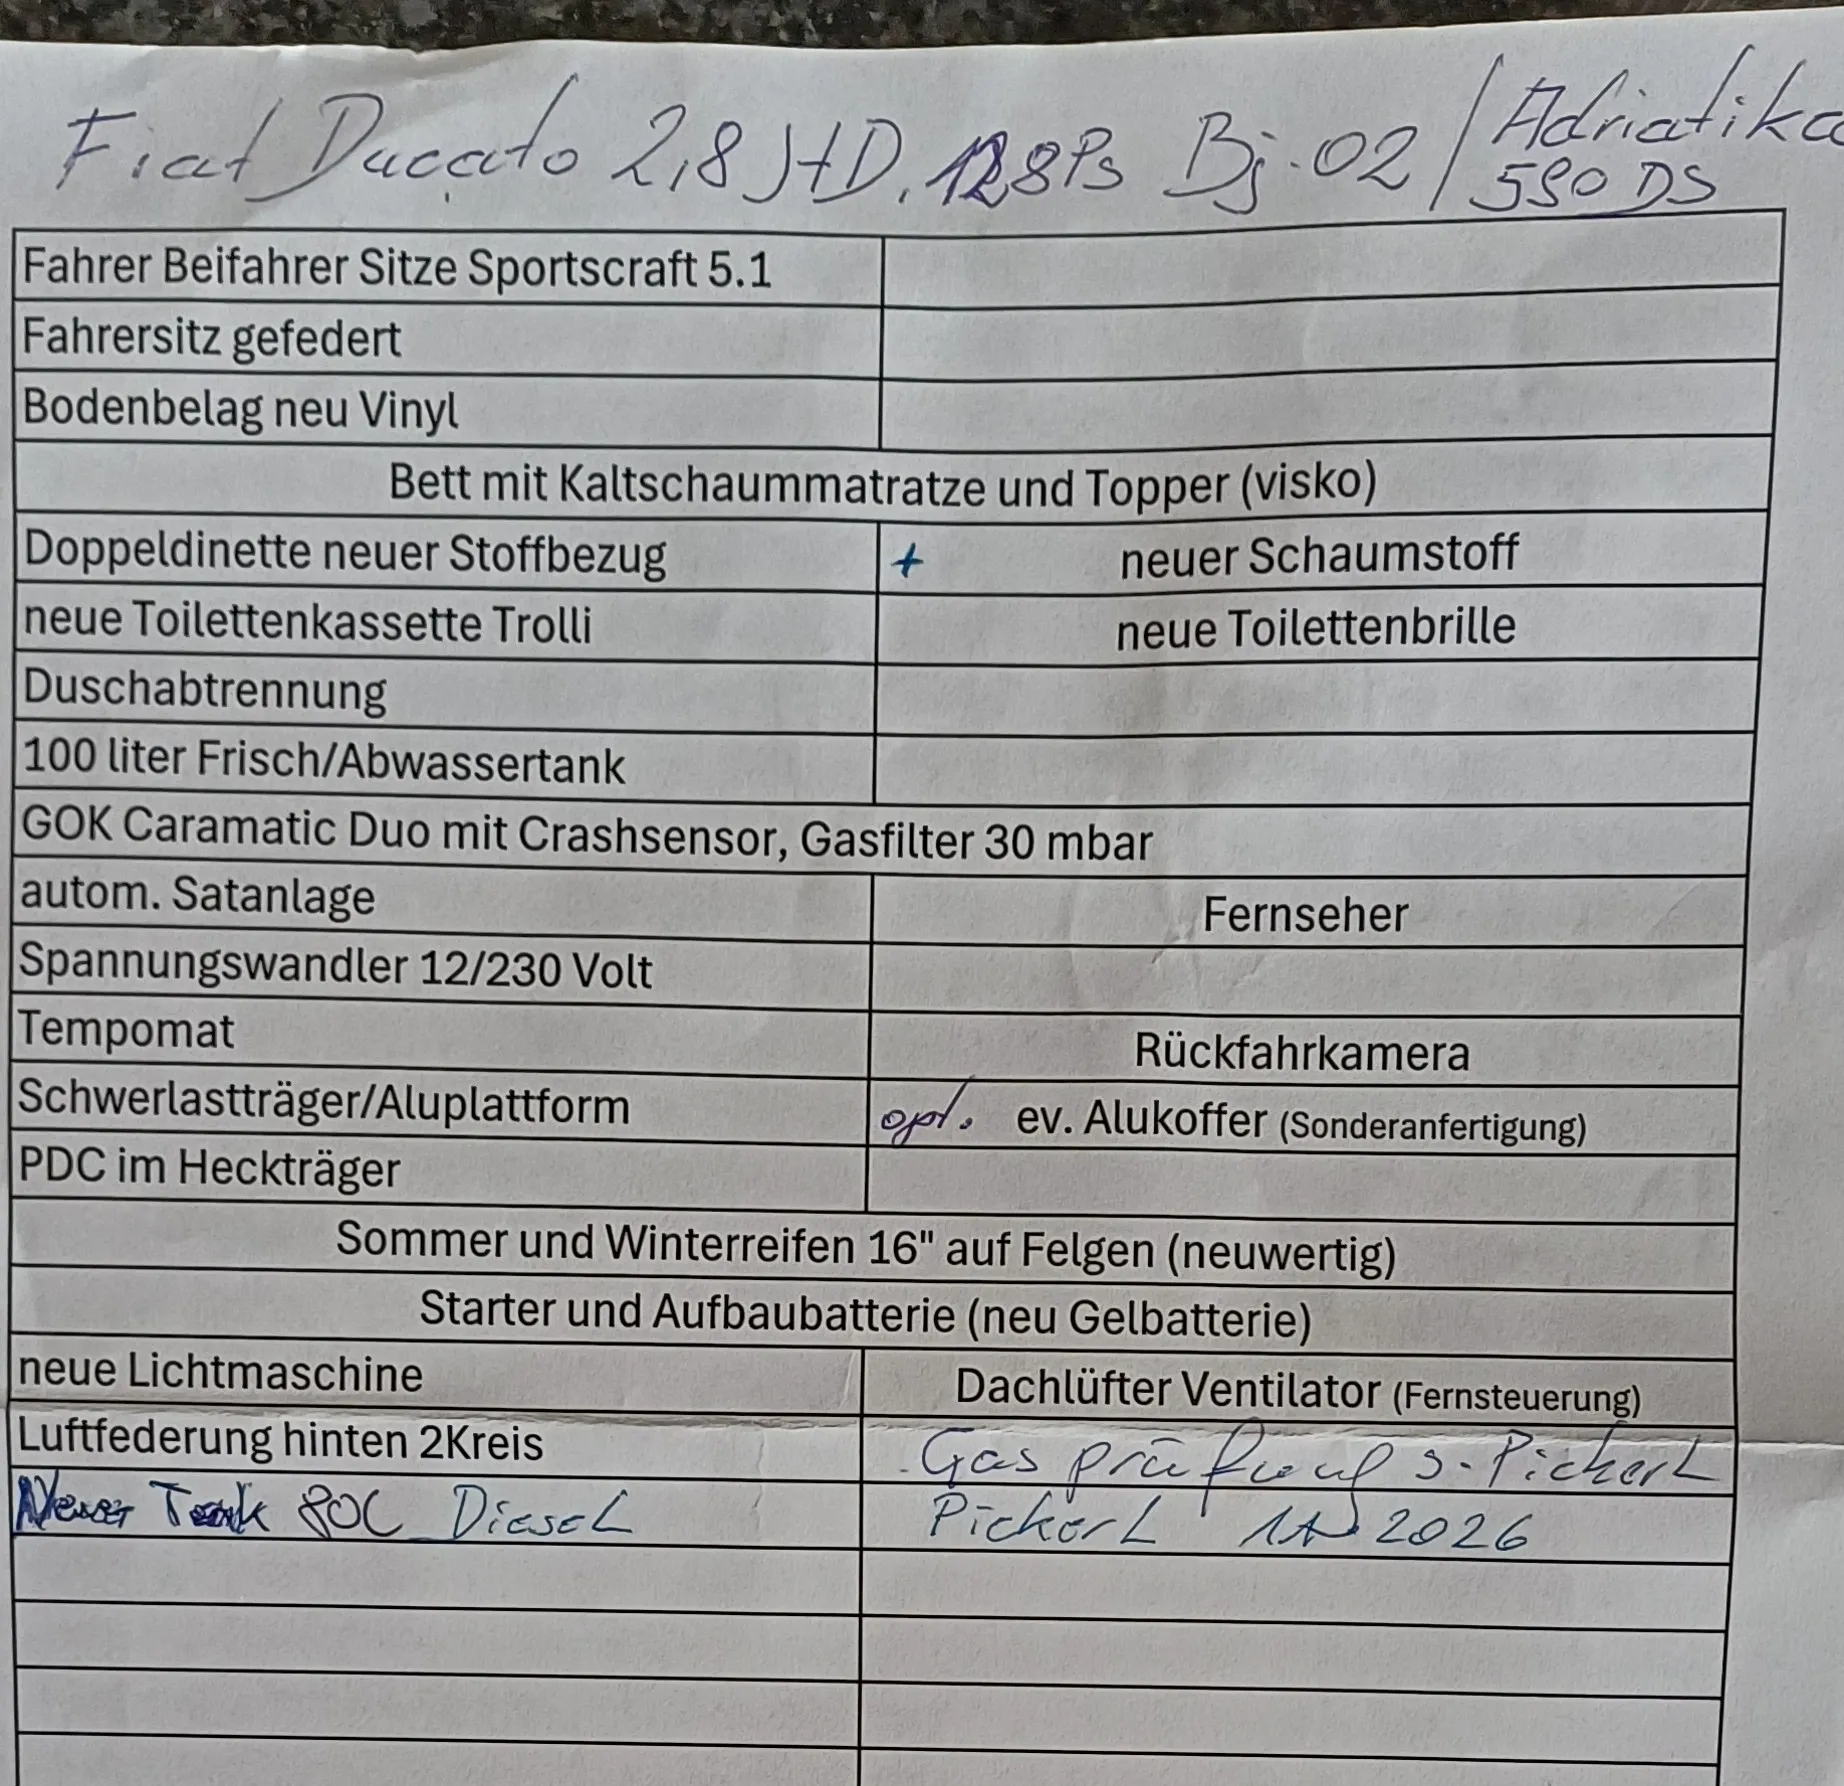 Fiat Ducato 2,8 JTD. 128Ps Bj. 02 / Adriatika
590 DS
Fahrer Beifahrer Sitze Sportscraft 5.1
Fahrersitz gefedert
Bodenbelag neu Vinyl
Bett mit Kaltschaummatratze und Topper (visko)
Doppeldinette neuer Stoffbezug + neuer Schaumstoff
neue Toilettenkassette Trolli neue Toilettenbrille
Duschabtrennung
100 liter Frisch/Abwassertank
GOK Caramatic Duo mit Crashsensor, Gasfilter 30 mbar
autom. Satanlage Fernseher
Spannungswandler 12/230 Volt
Tempomat Rückfahrkamera
Schwerlastträger/Aluplattform opt. ev. Alukoffer (Sonderanfertigung)
PDC im Heckträger
Sommer und Winterreifen 16" auf Felgen (neuwertig)
Starter und Aufbaubatterie (neu Gelbatterie)
neue Lichtmaschine Dachlüfter Ventilator (Fernsteuerung)
Luftfederung hinten 2Kreis Gasprüfung s. Pickerl
Neuer Tank 80L Diesel Pickerl 2026